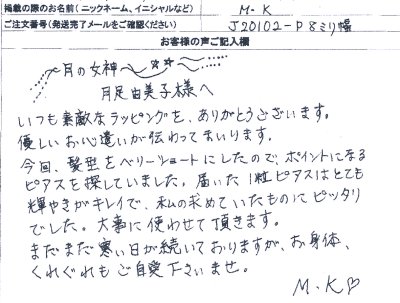 掲載の際のお名前(ニックネーム、イニシャルなど) M・K
ご注文番号(発送完了メールをご確認ください) J20102-P8ミリ幅
お客様の声ご記入欄
〜月の女神〜☆☆
月足由美子様へ
いつも素敵なラッピングを、ありがとうございます。
優しいお心遣いが伝わってまいります。
今回、髪型をベリーショートにしたので、ポイントになる
ピアスを探していました。届いた1粒ピアスはとても
輝やきがキレイで、私の求めていたものにピッタリ
でした。大事に使わせて頂きます。
まだまだ寒い日が続いておりますが、お身体、
くれぐれもご自愛下さいませ。
M・K♡